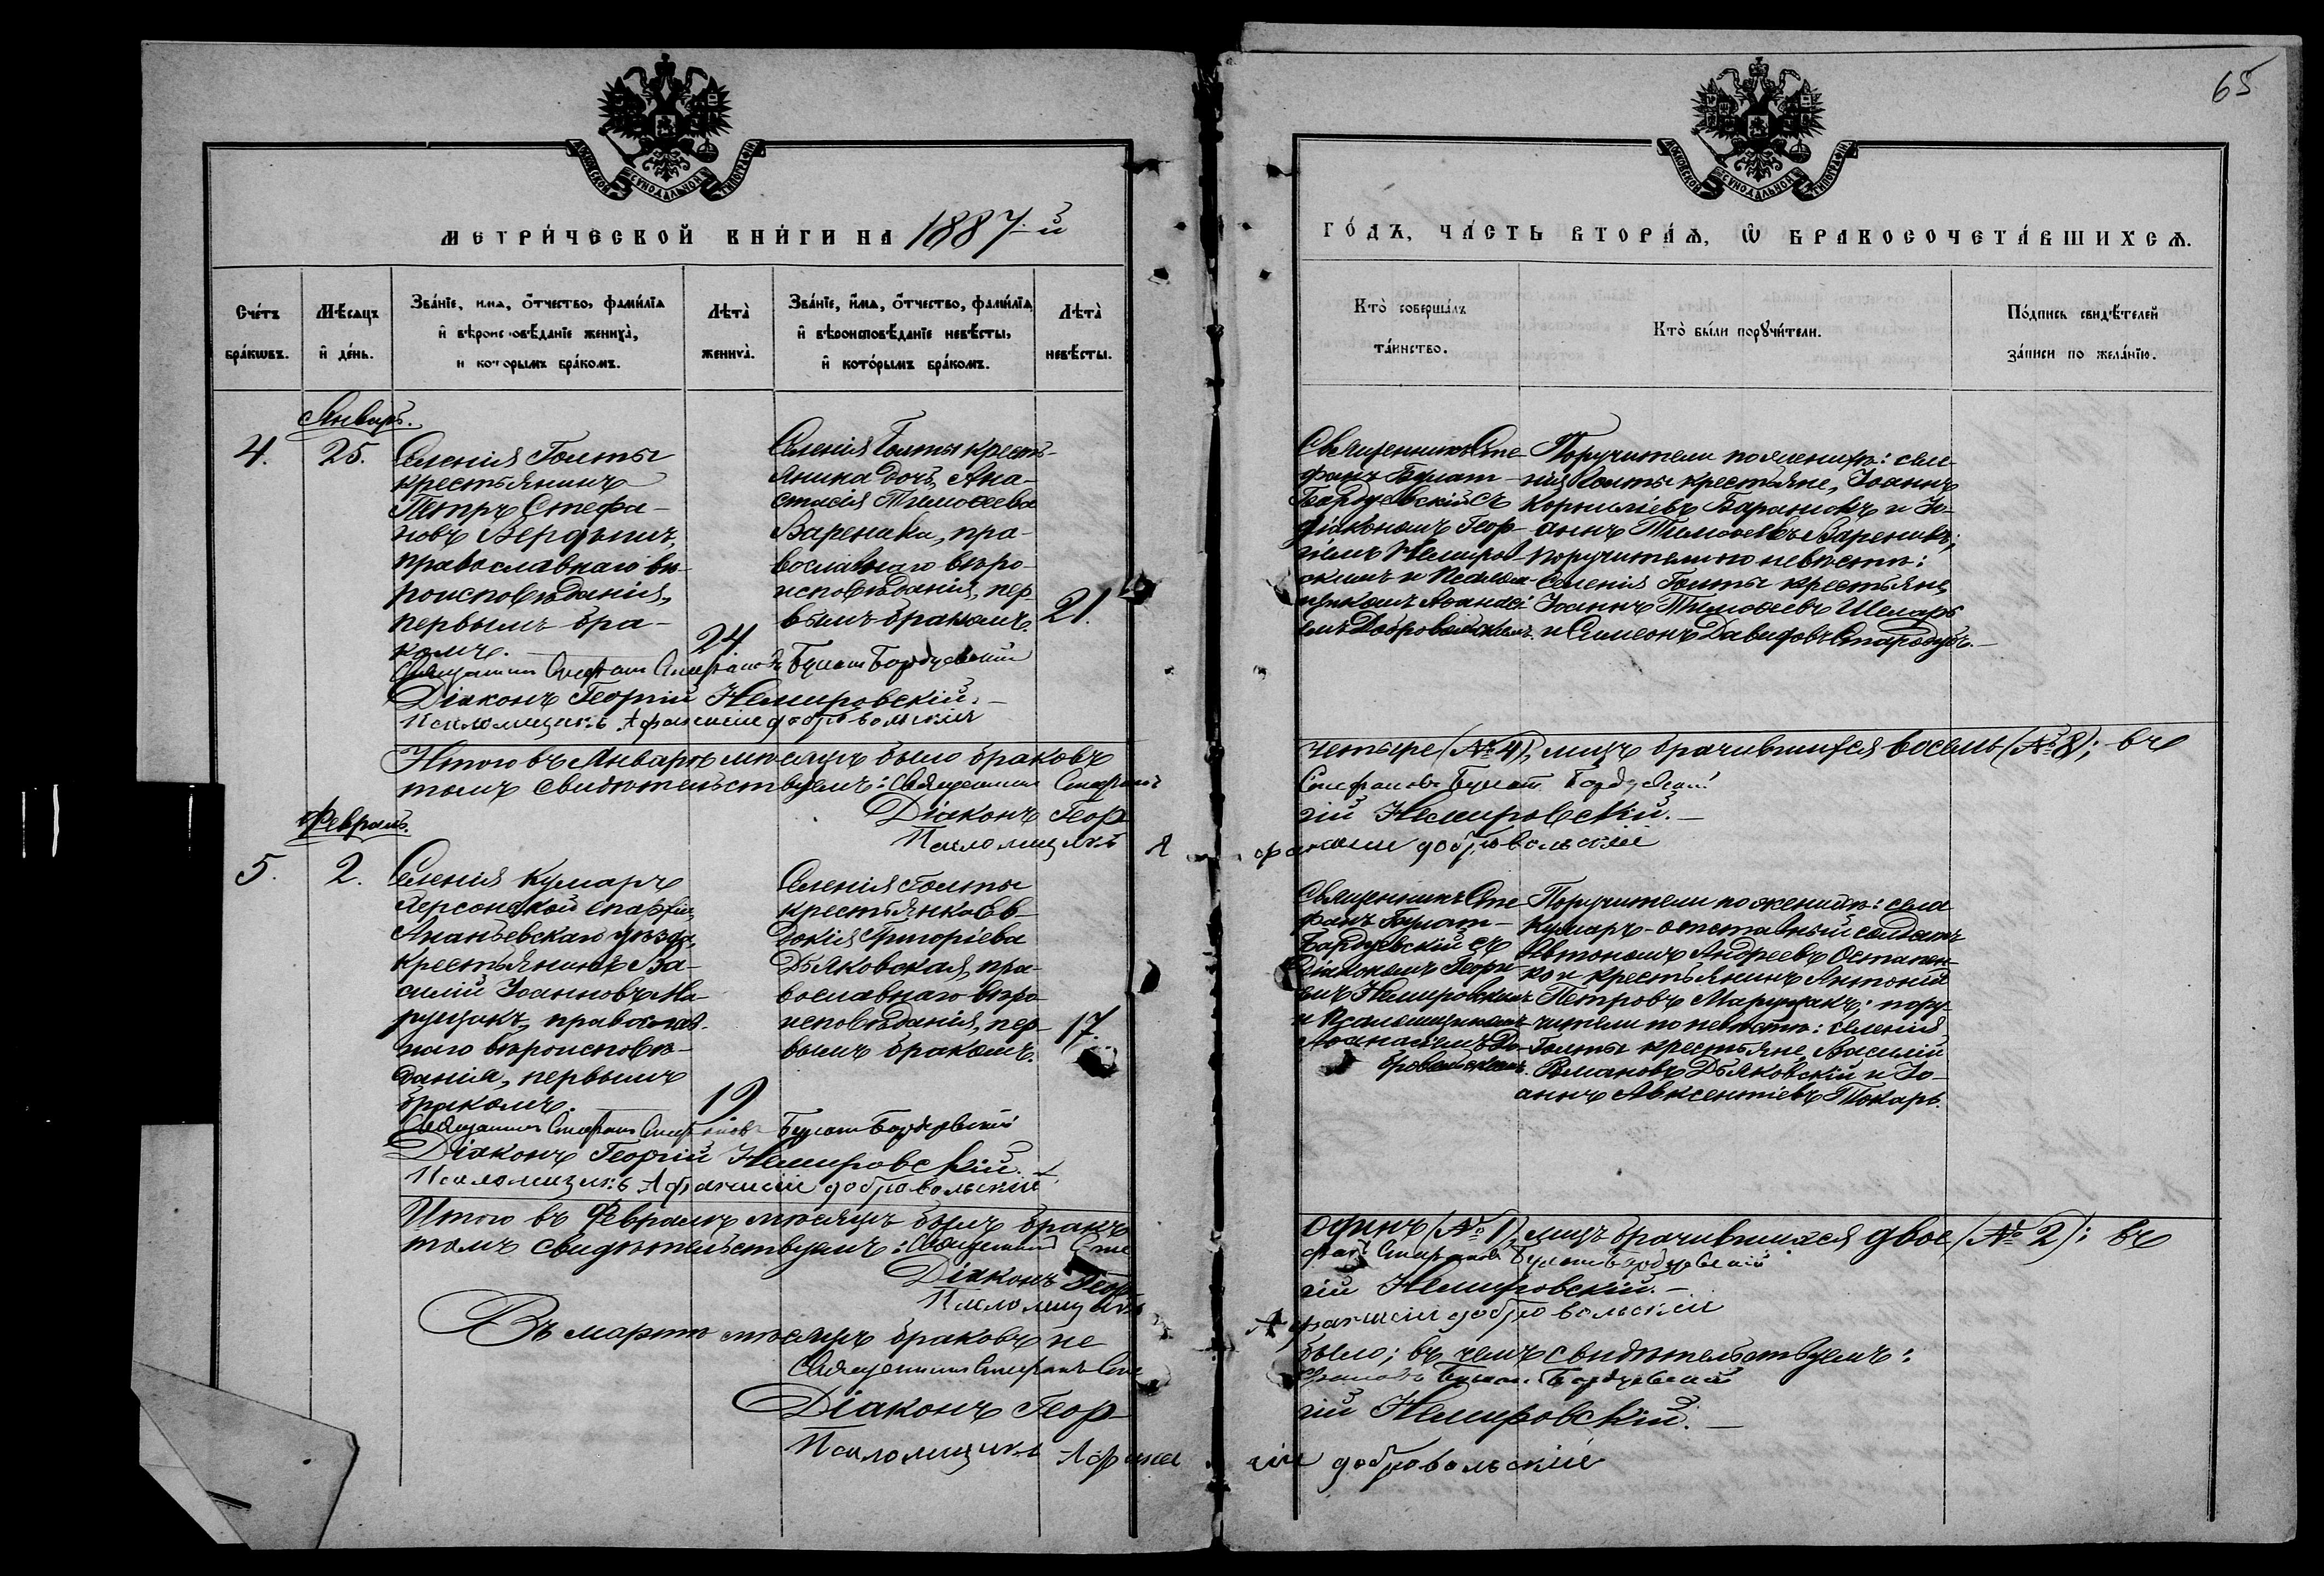 65
МОСКОВСКОЙ СѴНОДАЛЬНОЙ ТИПОГРАФІИ
МОСКОВСКОЙ СѴНОДАЛЬНОЙ ТИПОГРАФІИ
МЕТРИ́ЧЕСКОЙ КНИ́ГИ НА 1887-й
ГО́ДЪ, ЧА́СТЬ ВТОРА́Ѧ, Ѿ БРАКОСОЧЕТА́ВШИХСѦ.
Сче́тъ
бра́кѡвъ.
Мѣ́сѧцъ
и҆ де́нь.
Зва́нїе, и҆мѧ, ѻ҆́тчество, фами́лїѧ
и҆ вѣроисповѣ́данїе жениха̀,
и҆ кото́рымъ бра́комъ.
Лѣта̀
жениха̀.
Зва́нїе, и҆́мѧ, ѻ҆́тчество, фами́лїѧ
и҆ вѣроисповѣ́данїе невѣ́сты,
и҆ кото́рымъ бра́комъ.
Лѣта̀
невѣ́сты.
Кто̀ соверша́лъ
та́инство.
Кто̀ бы́ли порꙋчи́тели.
По́дпись свидѣ́телей
за́писи по жела́нїю.
Январь.
4.
25.
Селенія Голты
крестьянинъ
Петръ Стефа-
новъ
православнаго вѣ-
роисповѣданія,
первымъ бра-
комъ.
24
Селенія Голты кресть-
янина дочь, Ана-
стасія Тимоѳеева
Вареника, пра-
вославнаго вѣро-
исповѣданія, пер-
вымъ бракомъ.
21.
Священникъ Сте-
фанъ Булат-
Бардуевскій съ
Діакономъ Геор-
гіемъ Немиров-
скимъ и Псалом-
щикомъ Аѳанасі-
емъ Добровольскимъ.
Поручители по женихѣ: селе-
нія Голты крестьяне, Іоаннъ
Корниліевъ Баранюкъ и Іо-
аннъ Тимоѳеевъ Вареникъ;
поручители по невѣстѣ:
Селенія Голты крестьяне
Іоаннъ Тимоѳеевъ Шеларь
и Симеонъ Давидовъ Стародубъ.
Священникъ Стефанъ Стефановъ Булат Бардуевскій
Діаконъ Георгій Немировскій.
Псаломщикъ Афанасій Добровольскій
Итого въ Январѣ мѣсяцѣ было браковъ четыре (№ 4), лицъ брачившихся восемь (№ 8); въ
томъ свидѣтельствуемъ: Священникъ Стефанъ Стефановъ Булат Бардуевскій
Діаконъ Георгій Немировскій.
Псаломщикъ Афанасій Добровольскій
Февраль.
5.
2.
Селенія Кумаръ
Херсонской епархіи,
Ананьевскаго уѣзда,
крестьянинъ Ва-
силій Іоанновъ Ма-
рущакъ, православ-
наго вѣроисповѣ-
данія, первымъ
бракомъ.
19
Селенія Голты
крестьянка Ев-
докія Григоріева
Дьяковская, пра-
вославнаго вѣро-
исповѣданія, пер-
вымъ бракомъ.
17.
Священникъ Сте-
фанъ Булат-
Бардуевскій съ
Діакономъ Георгі-
емъ Немировскимъ
и Псаломщикомъ
Аѳанасіемъ До-
бровольскимъ.
Поручители по женихѣ: села
Кумаръ - отставный солдатъ
Автономъ Андреевъ Остапен-
ко и крестьянинъ Антоній
Петровъ Марущакъ; пору-
чители по невѣстѣ: селенія
Голты крестьяне, Василій
Романовъ Дьяковскій и Іо-
аннъ Авксентіевъ Токарь.
Священникъ Стефанъ Стефановъ Булат Бардуевскій
Діаконъ Георгій Немировскій.
Псаломщикъ Афанасій Добровольскій
Итого въ Февралѣ мѣсяцѣ былъ бракъ одинъ (№ 1), лицъ брачившихся двое (№ 2); въ
томъ свидѣтельствуемъ: Священникъ Стефанъ Стефановъ Булат Бардуевскій
Діаконъ Георгій Немировскій.
Псаломщикъ Афанасій Добровольскій
Въ мартѣ мѣсяцѣ браковъ не было; въ чемъ свидѣтельствуемъ:
Священникъ Стефанъ Стефановъ Булат Бардуевскій
Діаконъ Георгій Немировскій.
Псаломщикъ Афанасій Добровольскій